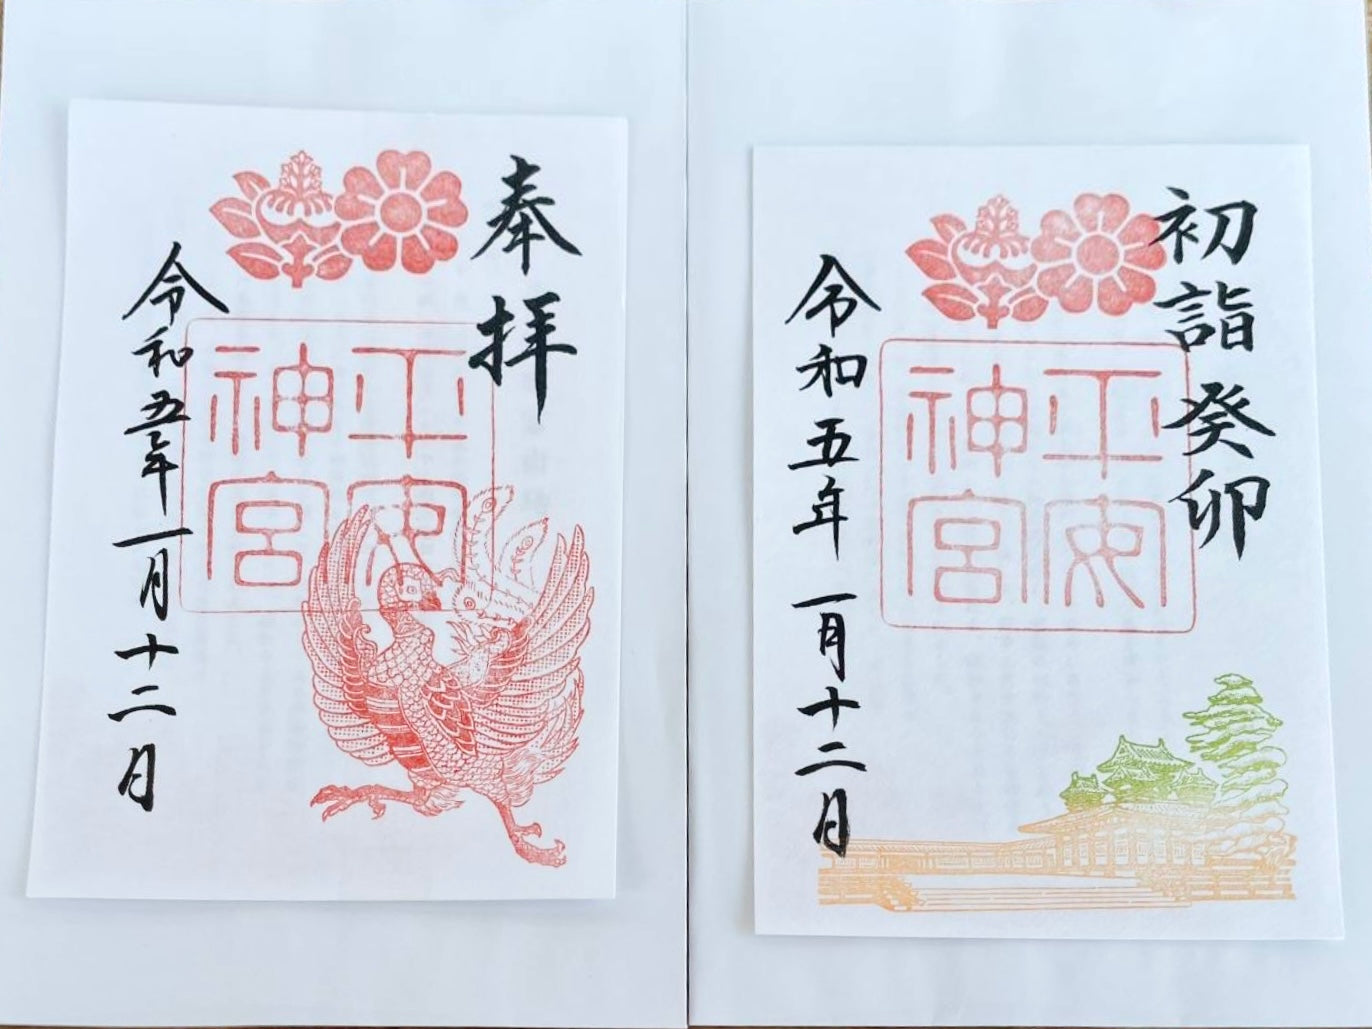 奉拝
平安
神宮
令和五年一月十二日
初詣 癸卯
平安
神宮
令和五年 一月十二日